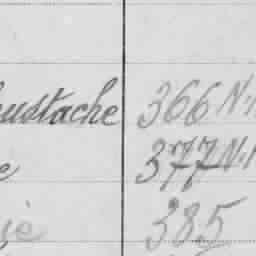 ustache 366 N.
e 377 N.
ie 385